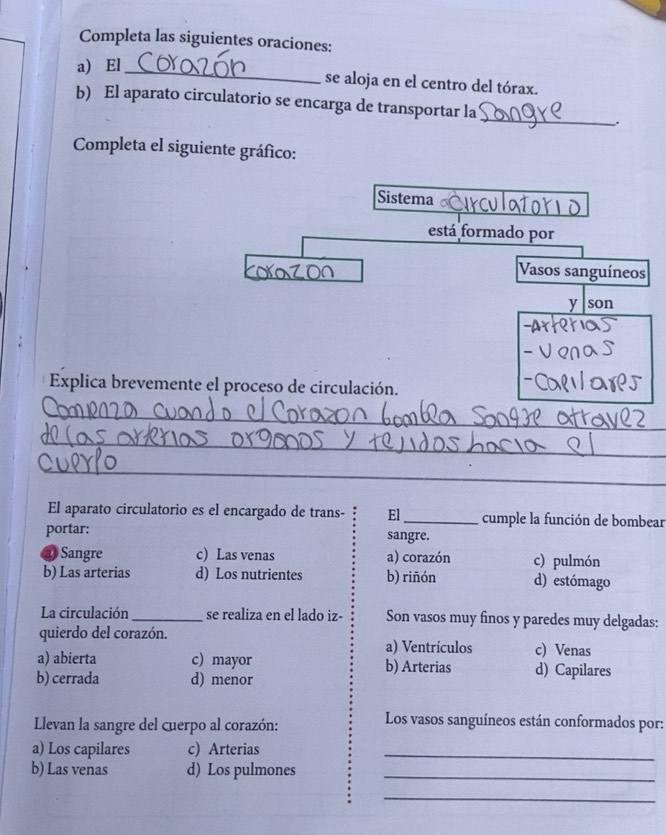 Completa las siguientes oraciones:
a) El Corazón se aloja en el centro del tórax.
b) El aparato circulatorio se encarga de transportar la Sangre.
Completa el siguiente gráfico:
Sistema Circulatorio
está formado por
corazon
Vasos sanguíneos
y son
-Arterias
-Venas
-Capilares
Explica brevemente el proceso de circulación.
Comienza cuando el Corazon bombea Sangre atravez
de las arterias organos y tejidos hacia el
cuerpo
El aparato circulatorio es el encargado de trans-
portar:
a) Sangre c) Las venas
b) Las arterias d) Los nutrientes
La circulación ________ se realiza en el lado iz-
quierdo del corazón.
a) abierta c) mayor
b) cerrada d) menor
Llevan la sangre del cuerpo al corazón:
a) Los capilares c) Arterias
b) Las venas d) Los pulmones
El ________ cumple la función de bombear
sangre.
a) corazón c) pulmón
b) riñón d) estómago
Son vasos muy finos y paredes muy delgadas:
a) Ventrículos c) Venas
b) Arterias d) Capilares
Los vasos sanguíneos están conformados por: